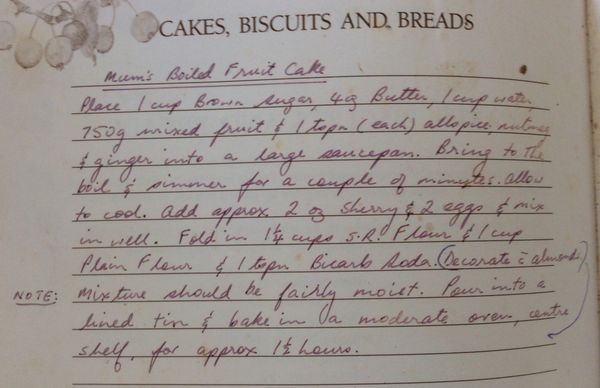 CAKES, BISCUITS AND BREADS
Mum's Boiled Fruit Cake
Place 1 cup Brown sugar, 4oz Butter, 1 cup water,
750g mixed fruit & 1 tspn (each) allspice, nutmeg
& ginger into a large saucepan. Bring to the
boil & simmer for a couple of minutes. Allow
to cool. Add approx 2 oz Sherry & 2 eggs & mix
in well. Fold in 1¼ cups S.R. Flour & 1 cup
Plain Flour & 1 tspn Bicarb Soda. (Decorate c̄ almonds)
NOTE: Mixture should be fairly moist. Pour into a
lined tin & bake in a moderate oven, centre
shelf, for approx 1½ hours.